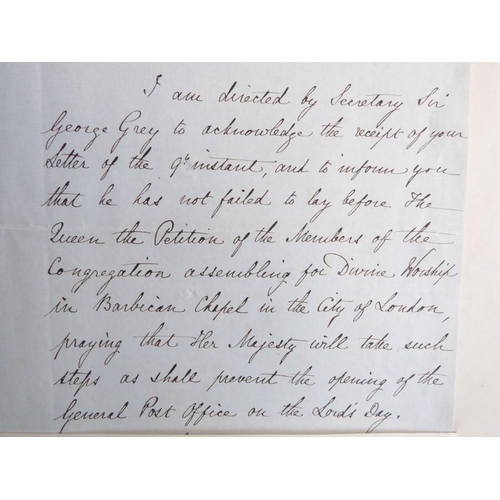 I am directed by Secretary Sir
George Grey to acknowledge the receipt of your
Letter of the 9th instant, and to inform you
that he has not failed to lay before The
Queen the Petition of the Members of the
Congregation assembling for Divine Worship
in Barbican Chapel in the City of London,
praying that Her Majesty will take such
steps as shall prevent the opening of the
General Post Office on the Lord's Day.